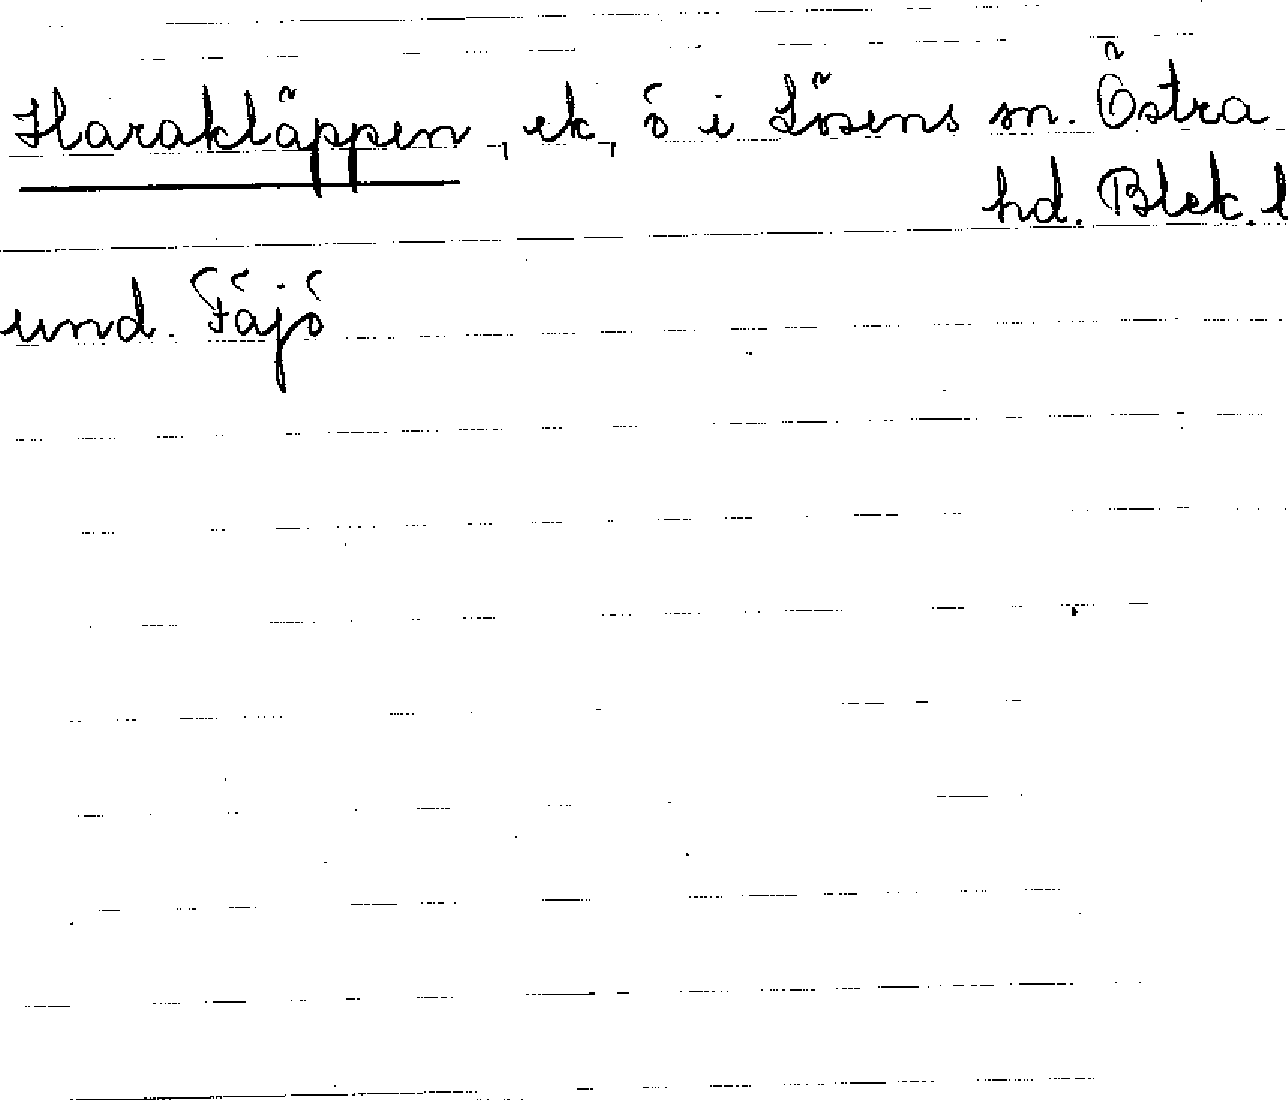 Harakläppen, ek, ö i Lösens sn. Östra
hd. Blek. l
und. Fäjö